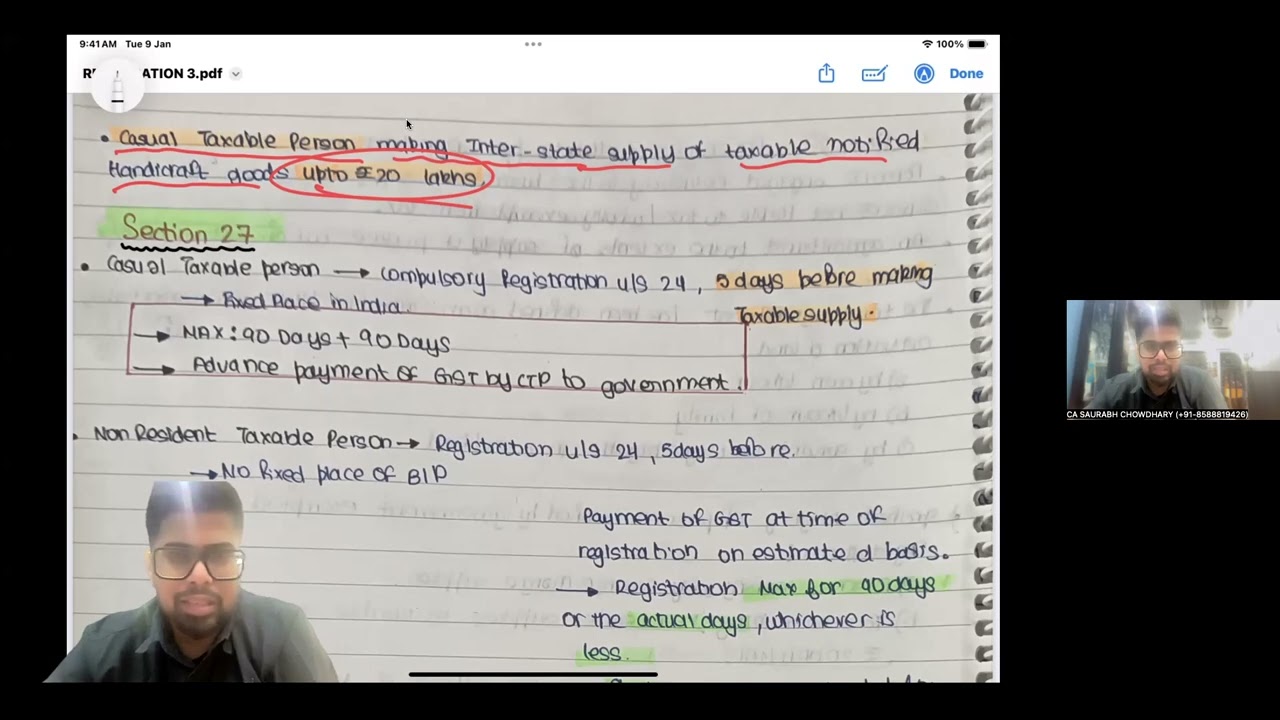 9:41 AM Tue 9 Jan
100%
ATION 3.pdf
Done
• Casual Taxable Person making Inter-state supply of taxable notified
Handicraft goods upto ₹20 lakhs.
Section 27
• Casual Taxable person → compulsory Registration u/s 24, 5 days before making
Taxable supply.
→ Fixed Place in India.
→ MAX: 90 Days + 90 Days
→ Advance payment of GST by CTP to government.
• Non Resident Taxable Person → Registration u/s 24, 5 days before.
→ No fixed place of B/P
Payment of GST at time of
registration on estimated basis.
→ Registration Max for 90 days
or the actual days, whichever is
less.
CA SAURABH CHOWDHARY (+91-8588819426)